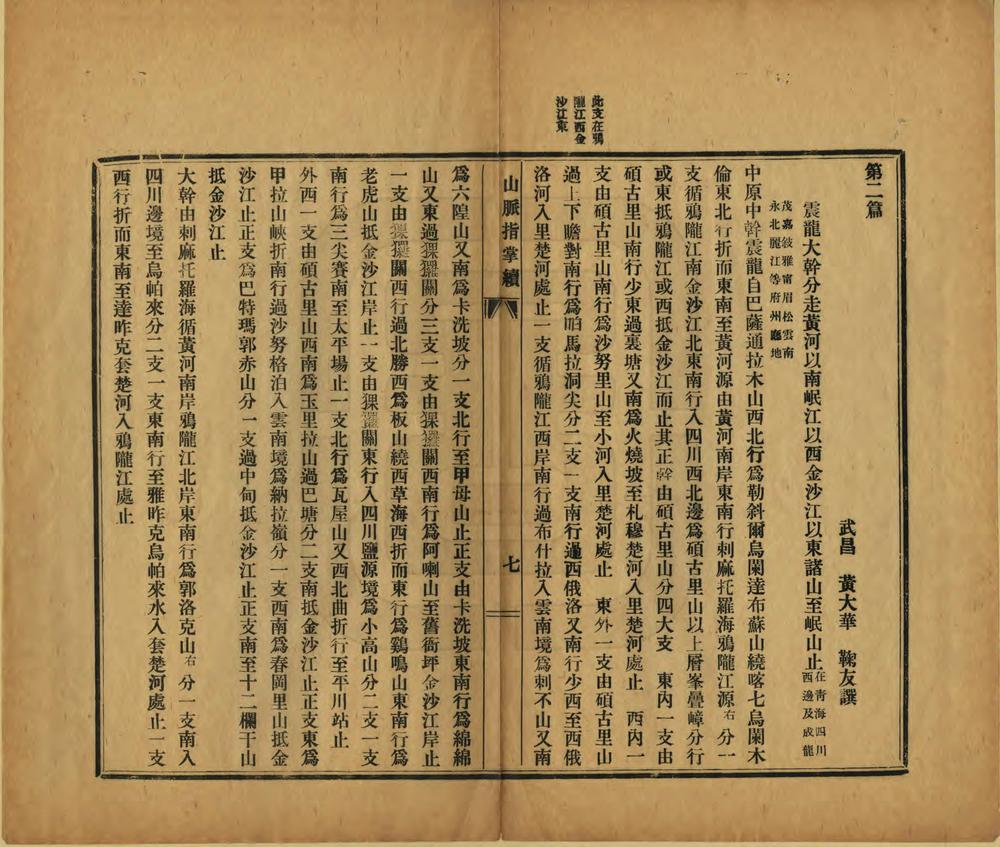 第二篇
武昌 黃大華 鞠友譔
震龍大幹分走黃河以南岷江以西金沙江以東諸山至岷山止在靑海四川西邊及成龍
茂嘉敍雅甯眉松雲南永北麗江等府州廳地
中原中幹震龍自巴薩通拉木山西北行爲勒斜爾烏闌達布蘇山繞喀七烏闌木
倫東北行折而東南至黃河源由黃河南岸東南行剌麻托羅海鴉隴江源右分一
支循鴉隴江南金沙江北東南行入四川西北邊爲碩古里山以上層峯疊嶂分行
或東抵鴉隴江或西抵金沙江而止其正幹由碩古里山分四大支 東內一支由
碩古里山南行少東過裏塘又南爲火燒坡至札穆楚河入里楚河處止 西內一
支由碩古里山南行爲沙努里山至小河入里楚河處止 東外一支由碩古里山
過上下瞻對南行爲咱馬拉洞尖分二支一支南行過西俄洛又南行少西至西俄
洛河入里楚河處止一支循鴉隴江西岸南行過布什拉入雲南境爲剌不山又南
此支在鴉
隴江西金
沙江東
山脈指掌續
七
爲六隍山又南爲卡洗坡分一支北行至甲母山止正支由卡洗坡東南行爲綿綿
山又東過猓玀關分三支一支由猓玀關西南行爲阿喇山至舊衙坪金沙江岸止
一支由猓玀關西行過北勝西爲板山繞西草海西折而東行爲鷄鳴山東南行爲
老虎山抵金沙江岸止一支由猓玀關東行入四川鹽源境爲小高山分二支一支
南行爲三尖賽南至太平場止一支北行爲瓦屋山又西北曲折行至平川站止
外西一支由碩古里山西南爲玉里拉山過巴塘分二支南抵金沙江止正支東爲
甲拉山峽折南行過沙努格泊入雲南境爲納拉嶺分一支西南爲春岡里山抵金
沙江止正支爲巴特瑪郭赤山分一支過中甸抵金沙江止正支南至十二欄干山
抵金沙江止
大幹由剌麻托羅海循黃河南岸鴉隴江北岸東南行爲郭洛克山右分一支南入
四川邊境至烏帕來分二支一支東南行至雅昨克烏帕來水入套楚河處止一支
西行折而東南至達昨克套楚河入鴉隴江處止